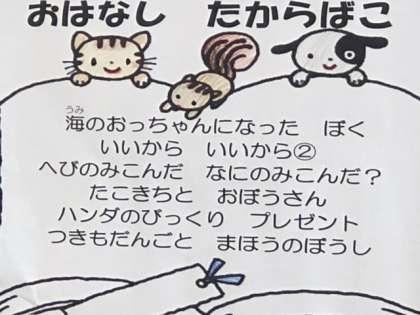 おはなし　たからばこ
うみ
海のおっちゃんになった　ぼく
いいから　いいから②
へびのみこんだ　なにのみこんだ？
たこきちと　おぼうさん
ハンダのびっくり　プレゼント
つきもだんごと　まほうのぼうし